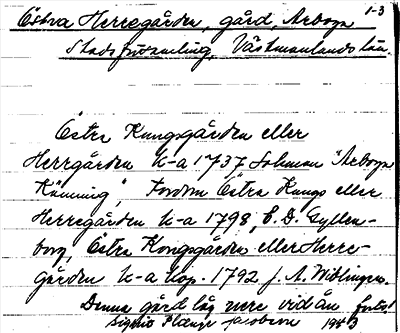 1-3
Östra Herregården, gård, Arboga
Stadsförsamling, Västmanlands län.
Östra Kungsgården eller
Herrgården k-a 1737 Sohman "Arboga
Känning", Fordom Östra Kungs eller
Herregården k-a 1798, C. D. Gyllen-
borg, Östra Kongsgården eller Herre-
gården k-a kop. 1792 f. A. Wiblingen.
Denna gård låg nere vid ån
Jacobson 1943